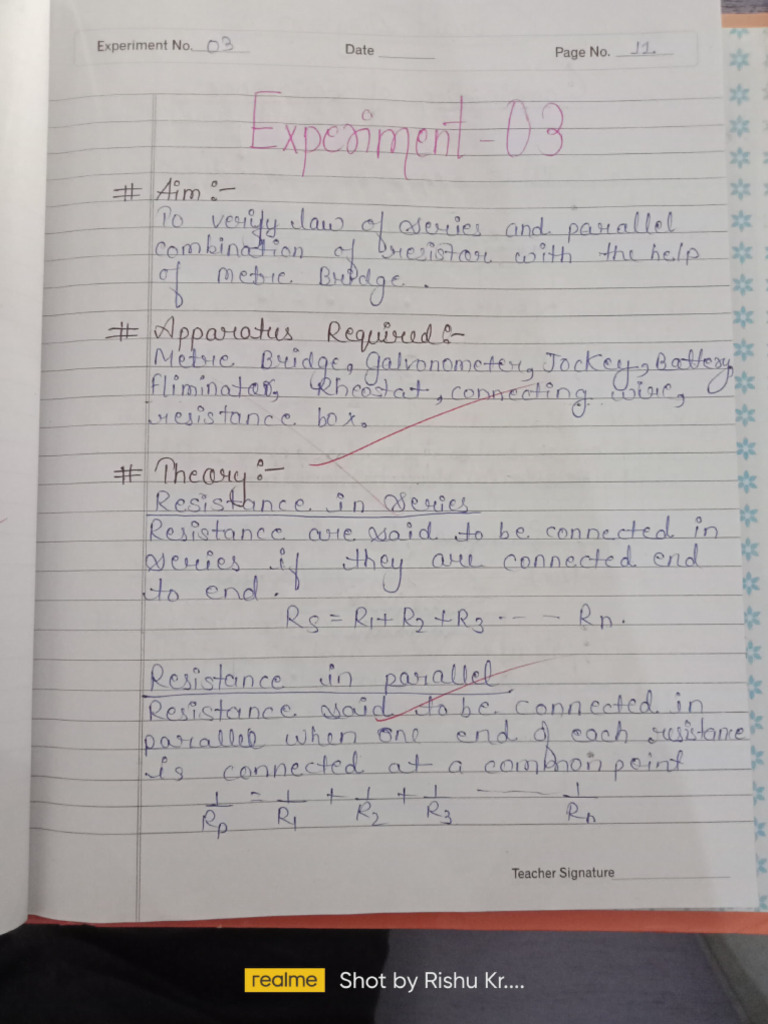 Experiment No. 03 Date Page No. 11.
Experiment - 03
# Aim :-
To verify law of series and parallel
combination of resistor with the help
of metric Bridge.
# Apparatus Required :-
Metric Bridge, Galvonometer, Jockey, Battery
Eliminator, Rheostat, connecting wire,
resistance box.
# Theory :-
Resistance in series
Resistance are said to be connected in
series if they are connected end
to end.
Rs = R1 + R2 + R3 ... - - Rn.
Resistance in parallel
Resistance said to be connected in
parallel when one end of each resistance
is connected at a common point
1/Rp = 1/R1 + 1/R2 + 1/R3 - - 1/Rn
Teacher Signature
realme Shot by Rishu Kr....